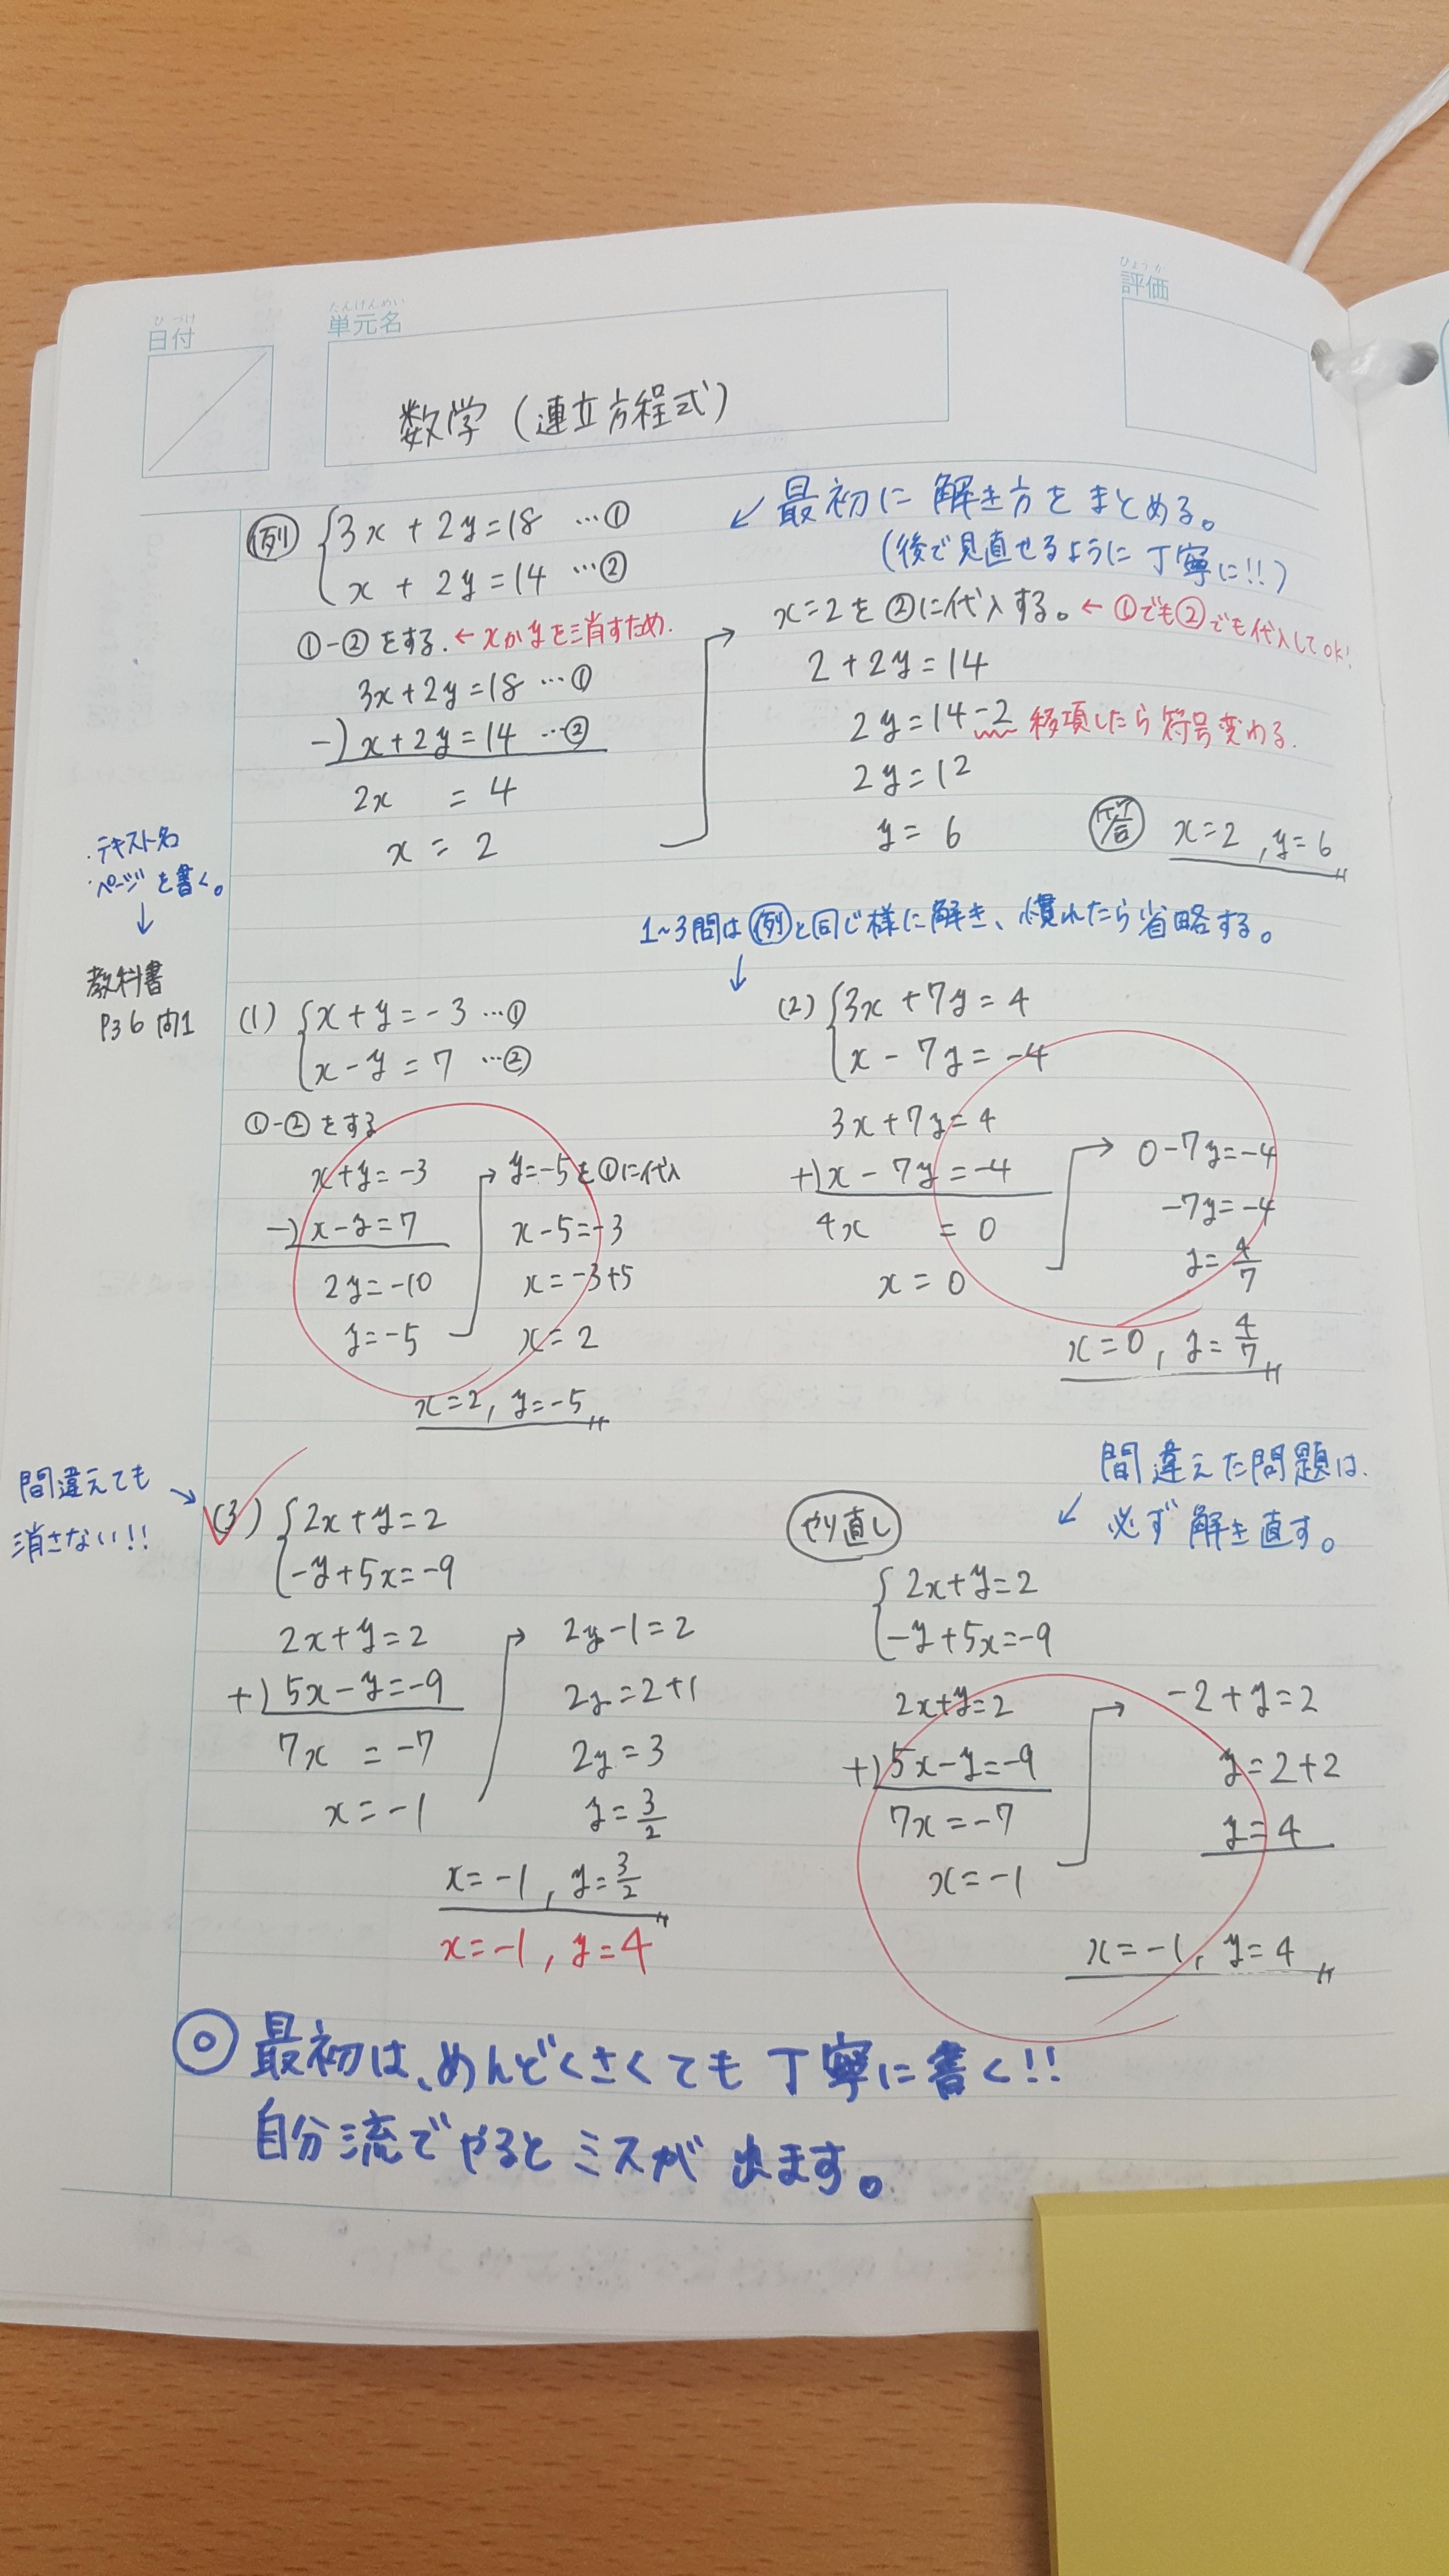 ひづけ
日付
たんげんめい
単元名
ひょうか
評価
数学(連立方程式)
例 3x + 2y = 18 …①
x + 2y = 14 …②
↙ 最初に 解き方を まとめる。
(後で見直せるように 丁寧に!!)
①-②をする. ← xかyを消すため.
3x+2y=18 …①
-) x+2y=14 …②
2x = 4
x = 2
x=2を②に代入する。← ①でも②でも代入してOK!
2+2y=14
2y=14-2 移項したら符号変わる.
2y=12
y= 6
答 x=2 , y=6
・テキスト名
・ページを書く。
↓
教科書
P36 問1
1~3問は例と同じ様に解き、慣れたら省略する。
↓
(1) x+y=-3 …①
x-y=7 …②
①-②をする
x+y=-3
-) x-y=7
2y=-10
y=-5
→ y=-5を①に代入
x-5=-3
x=-3+5
x=2
x=2, y=-5
(2) 3x+7y=4
x-7y=-4
3x+7y=4
+) x-7y=-4
4x = 0
x=0
→ 0-7y=-4
-7y=-4
y=4/7
x=0, y=4/7
間違えても →
消さない!!
(3) 2x+y=2
-y+5x=-9
2x+y=2
+) 5x-y=-9
7x = -7
x=-1
→ 2y-1=2
2y=2+1
2y=3
y=3/2
x=-1, y=3/2
x=-1, y=4
間違えた問題は.
↙ 必ず解き直す。
やり直し
2x+y=2
-y+5x=-9
2x+y=2
+) 5x-y=-9
7x=-7
x=-1
→ -2+y=2
y=2+2
y=4
x=-1, y=4
◎ 最初は、めんどくさくても 丁寧に書く!!
自分流でやると ミスが 出ます。